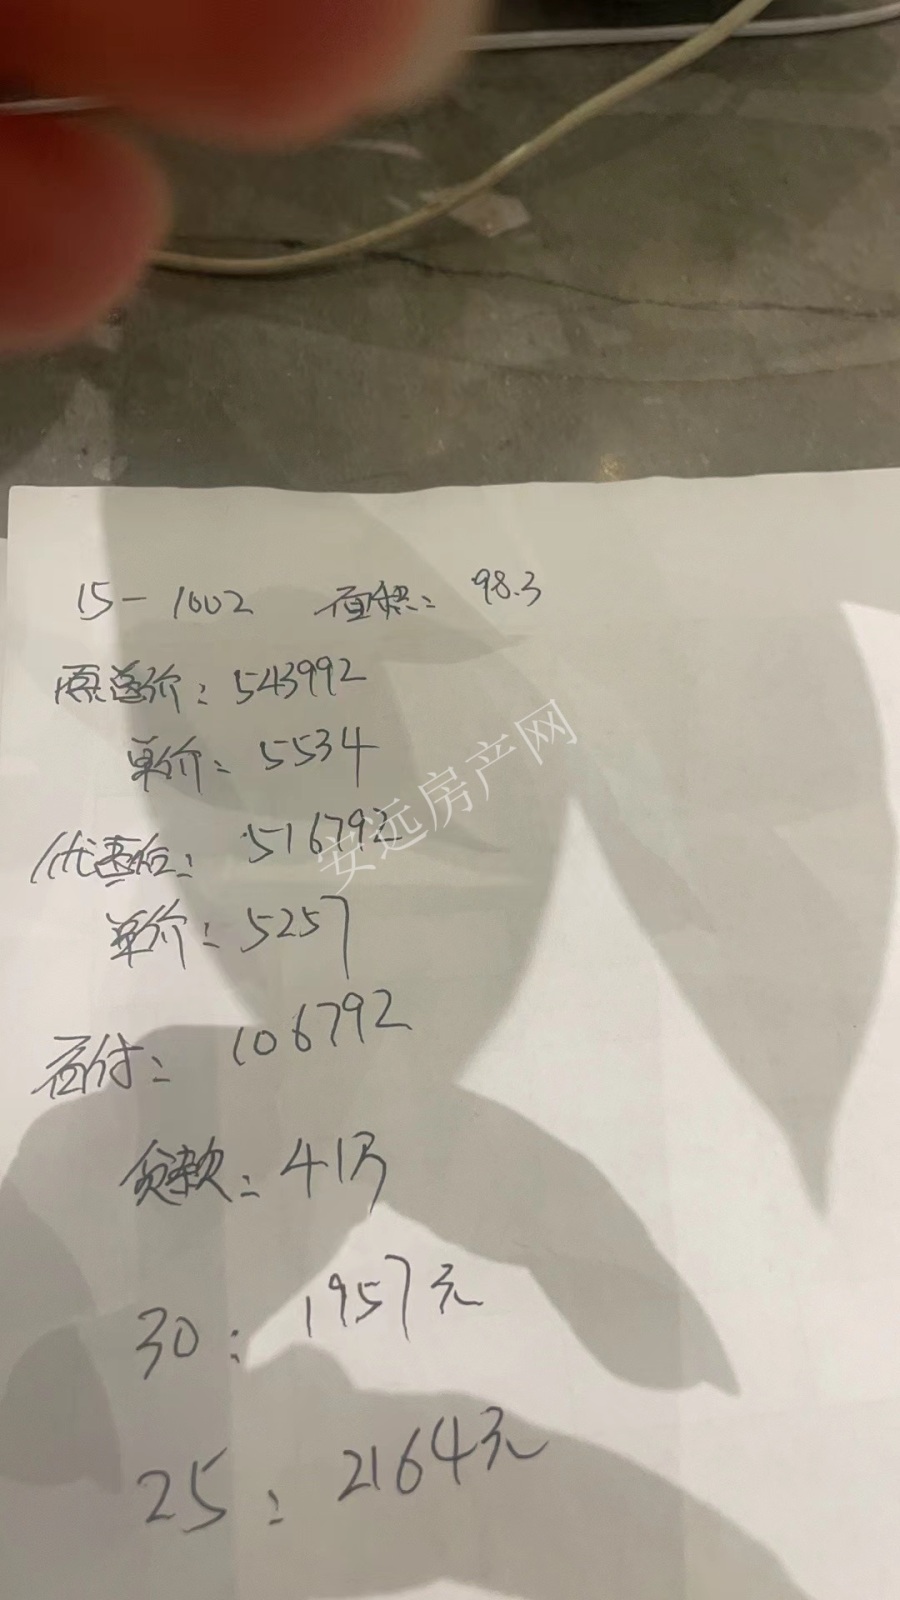 15-1002 面积: 98.3
原总价: 543992
单价: 5534
优惠后: 516792
单价: 5257
首付: 106792
贷款: 41万
30: 1957元
25: 2164元
安远房产网